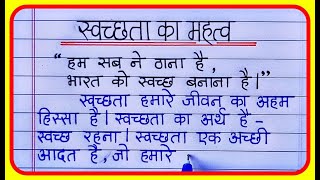 स्वच्छता का महत्व
“हम सब ने ठाना है ,
भारत को स्वच्छ बनाना है।”
स्वच्छता हमारे जीवन का अहम
हिस्सा है। स्वच्छता का अर्थ है -
स्वच्छ रहना। स्वच्छता एक अच्छी
आदत है, जो हमारे